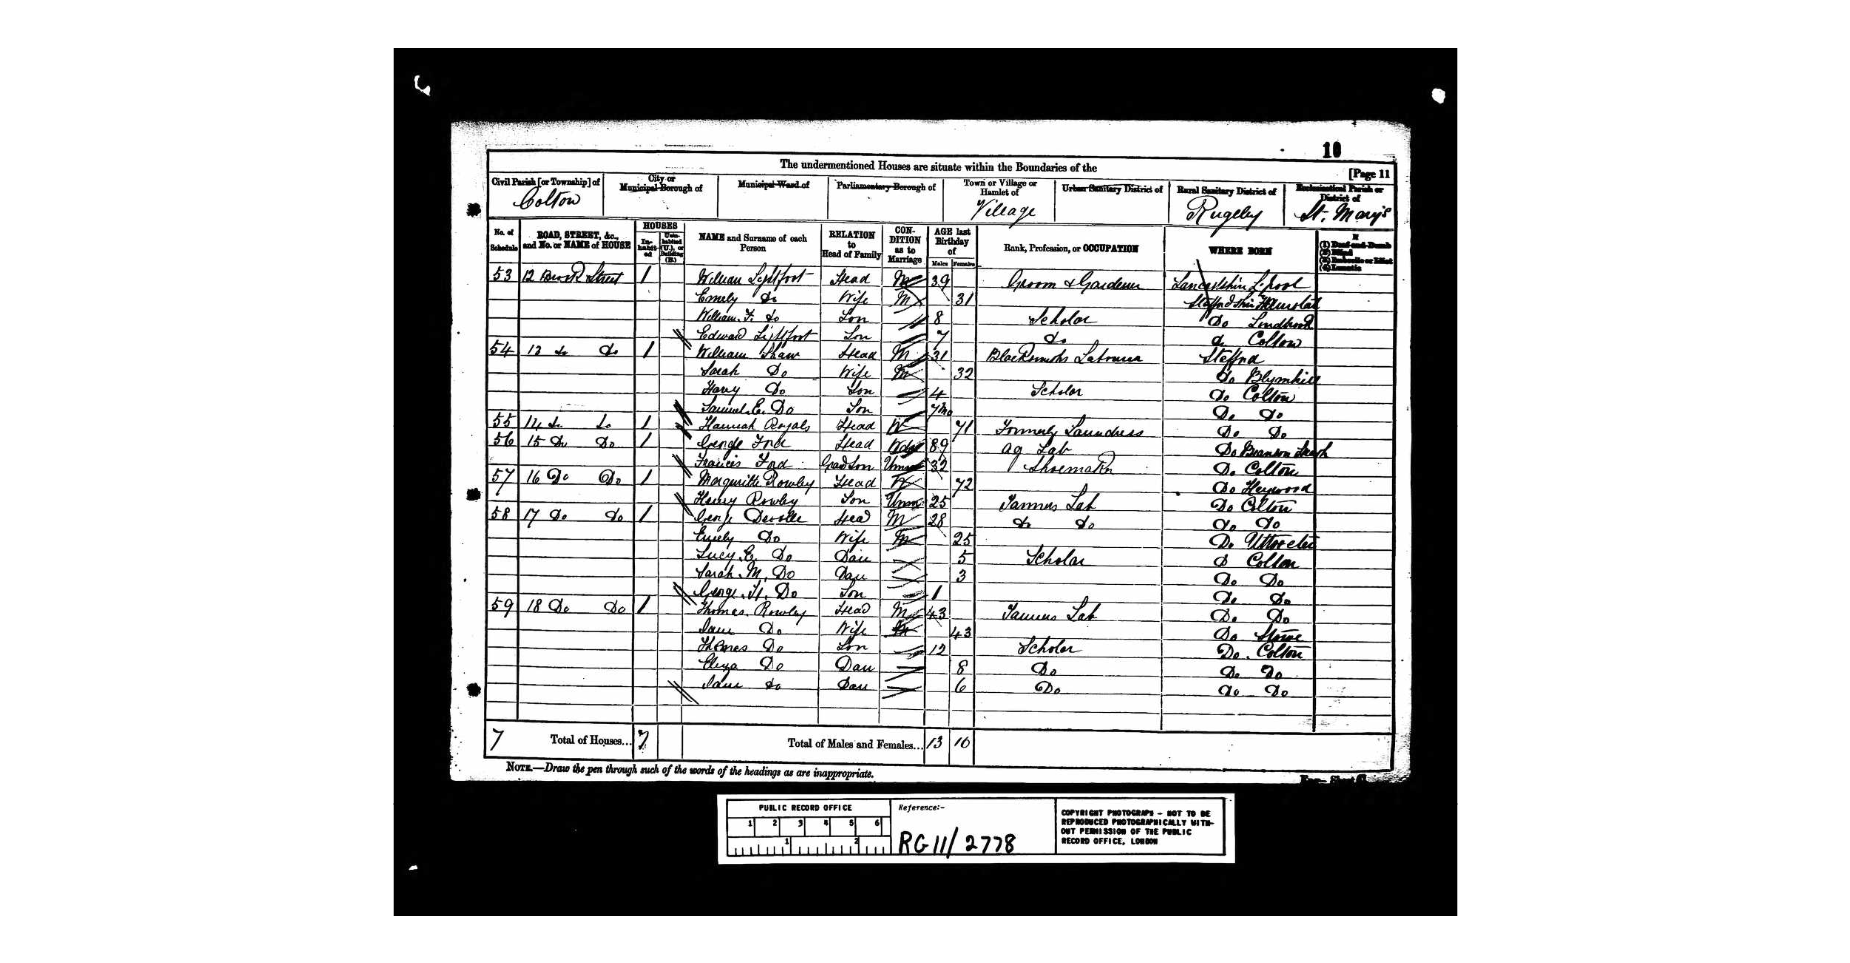 10
The undermentioned Houses are situate within the Boundaries of the
[Page 11
Civil Parish [or Township] of
City or Municipal Borough of
Municipal Ward of
Parliamentary Borough of
Town or Village or Hamlet of
Urban Sanitary District of
Rural Sanitary District of
Ecclesiastical Parish or District of
Colton
Village
Rugeley
St. Mary's
No. of Schedule
ROAD, STREET, &c., and No. or NAME of HOUSE
HOUSES
In-habit-ed
Unin-habited (U.), or Building (B.)
NAME and Surname of each Person
RELATION to Head of Family
CON-DITION as to Marriage
AGE last Birthday of
Males
Females
Rank, Profession, or OCCUPATION
WHERE BORN
(1) Deaf-and-Dumb
(2) Blind
(3) Imbecile or Idiot
(4) Lunatic
53 12 Street 1 William Lightfoot Head M 39 Groom & Gardener Lancashire L.pool
Emily Do Wife M 31
William. F. Do Son 8 Scholar Do
Edward Lightfoot Son 7 do do Colton
54 13 do do 1 William Shaw Head M 31 Blacksmiths Labourer Stafford
Sarah Do Wife M 32 Do Blymhill
Harry Do Son 4 Scholar Do Colton
Samuel. E. Do Son 7mo Do Do
55 14 do do 1 Hannah Royals Head W 71 Formerly Laundress Do Do
56 15 Do Do 1 George Ford Head Wdr 89 Ag Lab Do
Francis Ford GrandSon Unm 32 Shoemaker Do Colton
57 16 Do Do 1 Margurite Rowley Head W 72 Do Heywood
Henry Rowley Son Unm 25 Tanners Lab Do Colton
58 17 Do Do 1 George Deville Head M 28 do do do do
Emily Do Wife M 25 Do Uttoxeter
Lucy. E. Do Dau 5 Scholar D Colton
Sarah. M. Do Dau 3 Do Do
George. H. Do Son 1 Do Do
59 18 Do Do 1 Thomas Rowley Head M 43 Tanners Lab Do Do
Jane Do Wife M 43 Do Stowe
Thomas Do Son 12 Scholar Do. Colton
Eliza Do Dau 8 Do Do Do
Jane do Dau 6 Do do Do
7 Total of Houses... 7 Total of Males and Females... 13 10
NOTE.—Draw the pen through such of the words of the headings as are inappropriate.
PUBLIC RECORD OFFICE
1 2 3 4 5 6
1 2
Reference:-
RG 11/ 2778
COPYRIGHT PHOTOGRAPH - NOT TO BE
REPRODUCED PHOTOGRAPHICALLY WITH-
OUT PERMISSION OF THE PUBLIC
RECORD OFFICE, LONDON